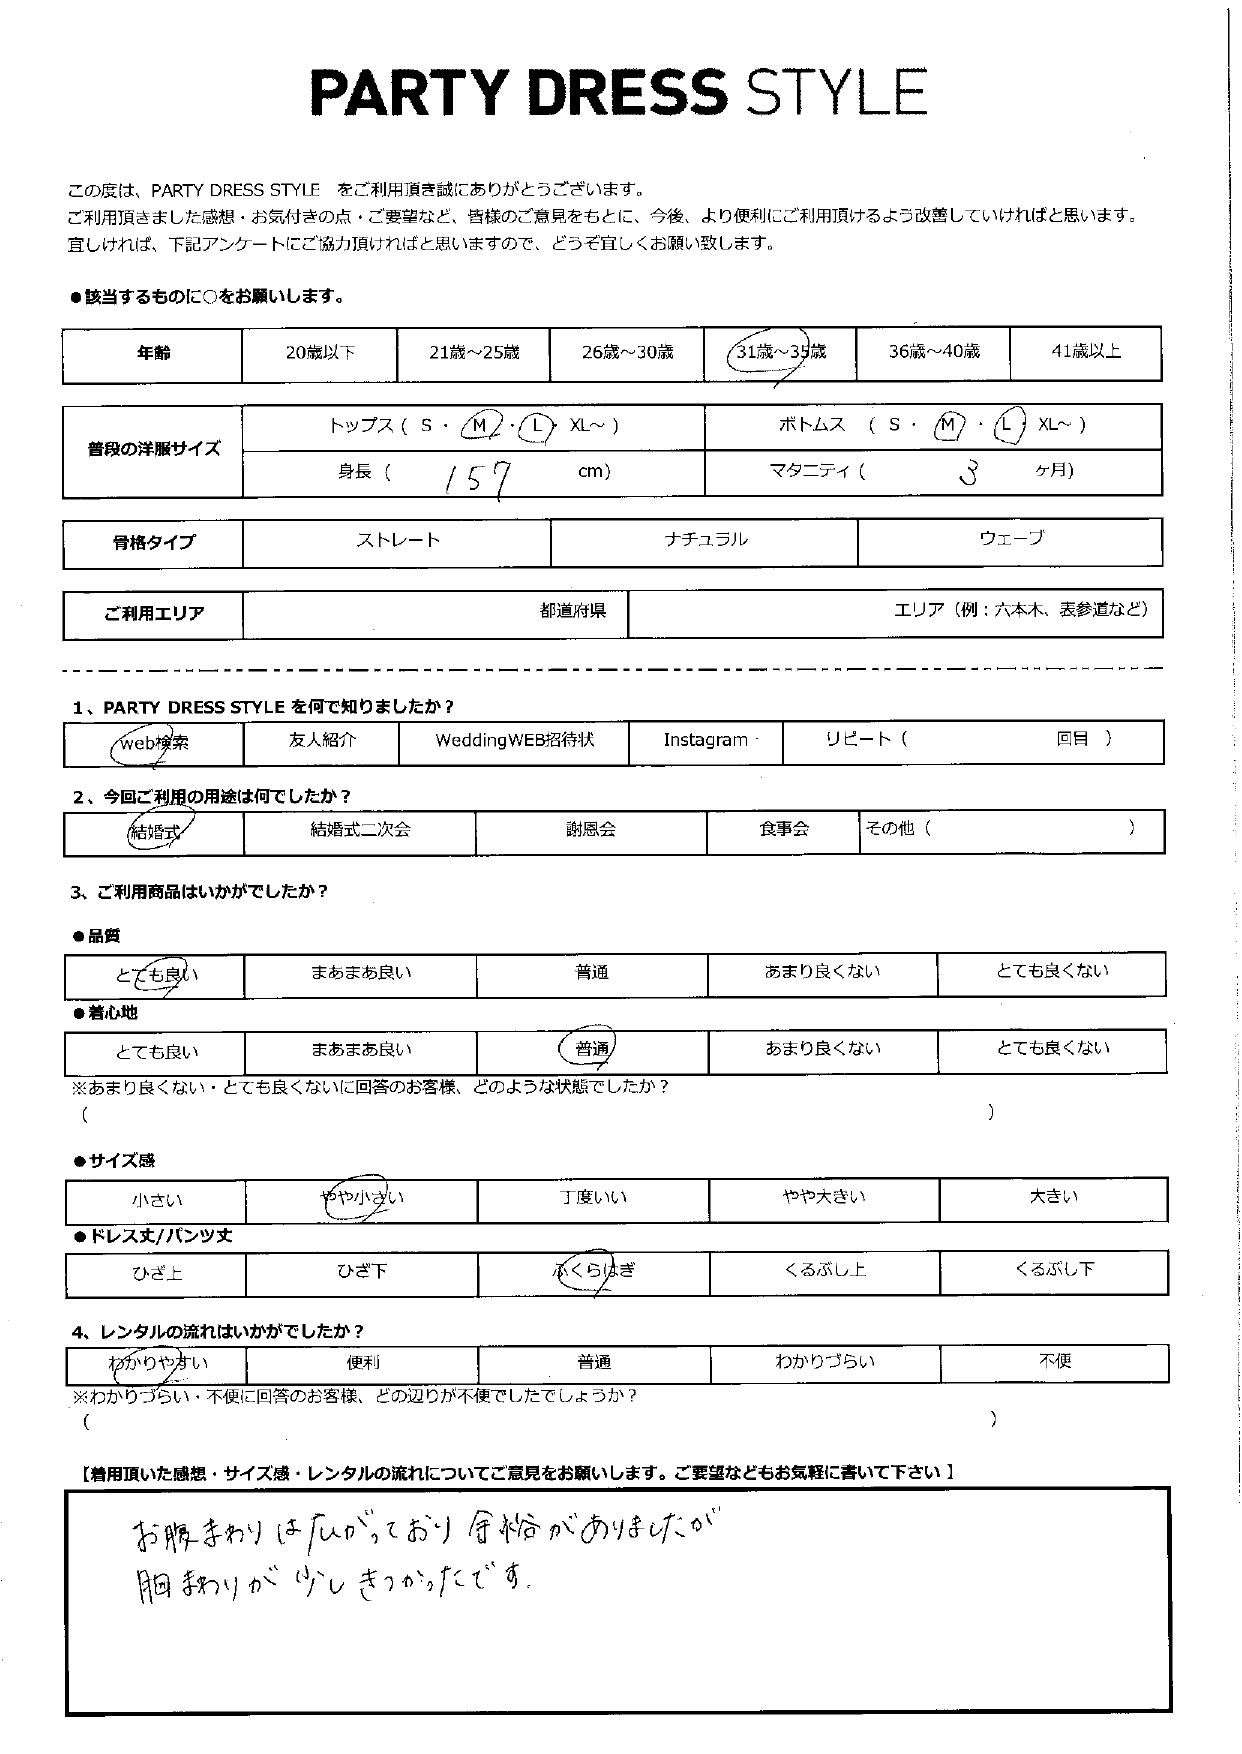 PARTY DRESS STYLE
この度は、PARTY DRESS STYLE をご利用頂き誠にありがとうございます。
ご利用頂きました感想・お気付きの点・ご要望など、皆様のご意見をもとに、今後、より便利にご利用頂けるよう改善していければと思います。
宜しければ、下記アンケートにご協力頂ければと思いますので、どうぞ宜しくお願い致します。
●該当するものに○をお願いします。
年齢 20歳以下 21歳～25歳 26歳～30歳 31歳～35歳 36歳～40歳 41歳以上
普段の洋服サイズ トップス ( S ・ M ・ L ・ XL～ ) ボトムス ( S ・ M ・ L ・ XL～ )
身長 ( 157 cm) マタニティ ( 3 ヶ月)
骨格タイプ ストレート ナチュラル ウェーブ
ご利用エリア 都道府県 エリア（例：六本木、表参道など）
1、PARTY DRESS STYLE を何で知りましたか？
web検索 友人紹介 WeddingWEB招待状 Instagram リピート ( 回目 )
2、今回ご利用の用途は何でしたか？
結婚式 結婚式二次会 謝恩会 食事会 その他 ( )
3、ご利用商品はいかがでしたか？
●品質
とても良い まあまあ良い 普通 あまり良くない とても良くない
●着心地
とても良い まあまあ良い 普通 あまり良くない とても良くない
※あまり良くない・とても良くないに回答のお客様、どのような状態でしたか？
( )
●サイズ感
小さい やや小さい 丁度いい やや大きい 大きい
●ドレス丈/パンツ丈
ひざ上 ひざ下 ふくらはぎ くるぶし上 くるぶし下
4、レンタルの流れはいかがでしたか？
わかりやすい 便利 普通 わかりづらい 不便
※わかりづらい・不便に回答のお客様、どの辺りが不便でしたでしょうか？
( )
【着用頂いた感想・サイズ感・レンタルの流れについてご意見をお願いします。ご要望などもお気軽に書いて下さい】
お腹まわりは広がっており余裕がありましたが
胴まわりが少しきつかったです。